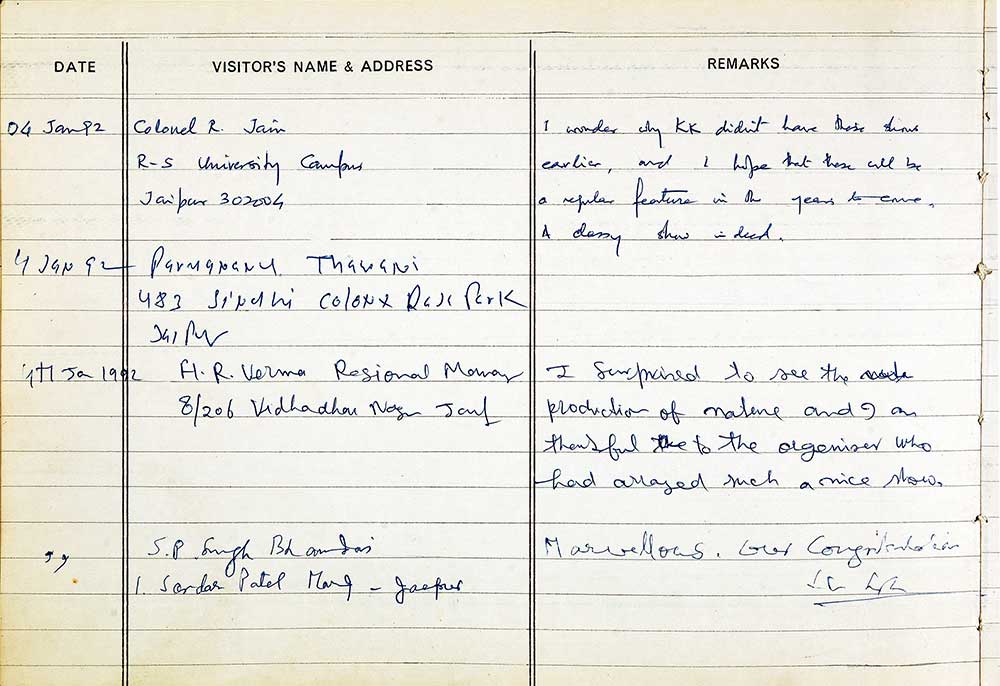 DATE VISITOR'S NAME & ADDRESS REMARKS
04 Jan 92 Colonel R. Jain I wonder why KK didn't have these shows
R-S University Campus earlier, and I hope that these will be
Jaipur 302004 a regular feature in the years to come.
A classy show indeed.
4 Jan 92 Parmanand Thawani
483 Sindhi Colony Raja Park
Jaipur
4th Jan 1992 H. R. Verma Regional Manag I Surprised to see the
8/206 Vidhadhar Nagar Jaipur production of nature and I am
thankful to the organiser who
had arraged such a nice show.
,, S. P. Singh Bhandari Marvellous. Congratulation
1. Sardar Patel Marg - Jaipur